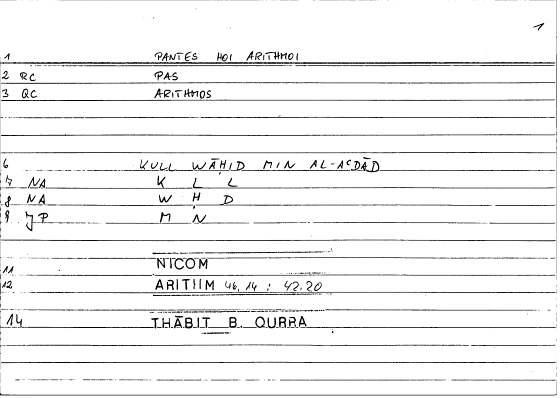 1
1 PANTES HOI ARITHMOI
2 RC PAS
3 QC ARITHMOS
6 KULL WĀHID MIN AL-ACDĀD
7 NA K L L
8 NA W H D
9 JP M N
NICOM
11
12 ARITHM 46,14 : 42.20
14 THĀBIT B. QURRA